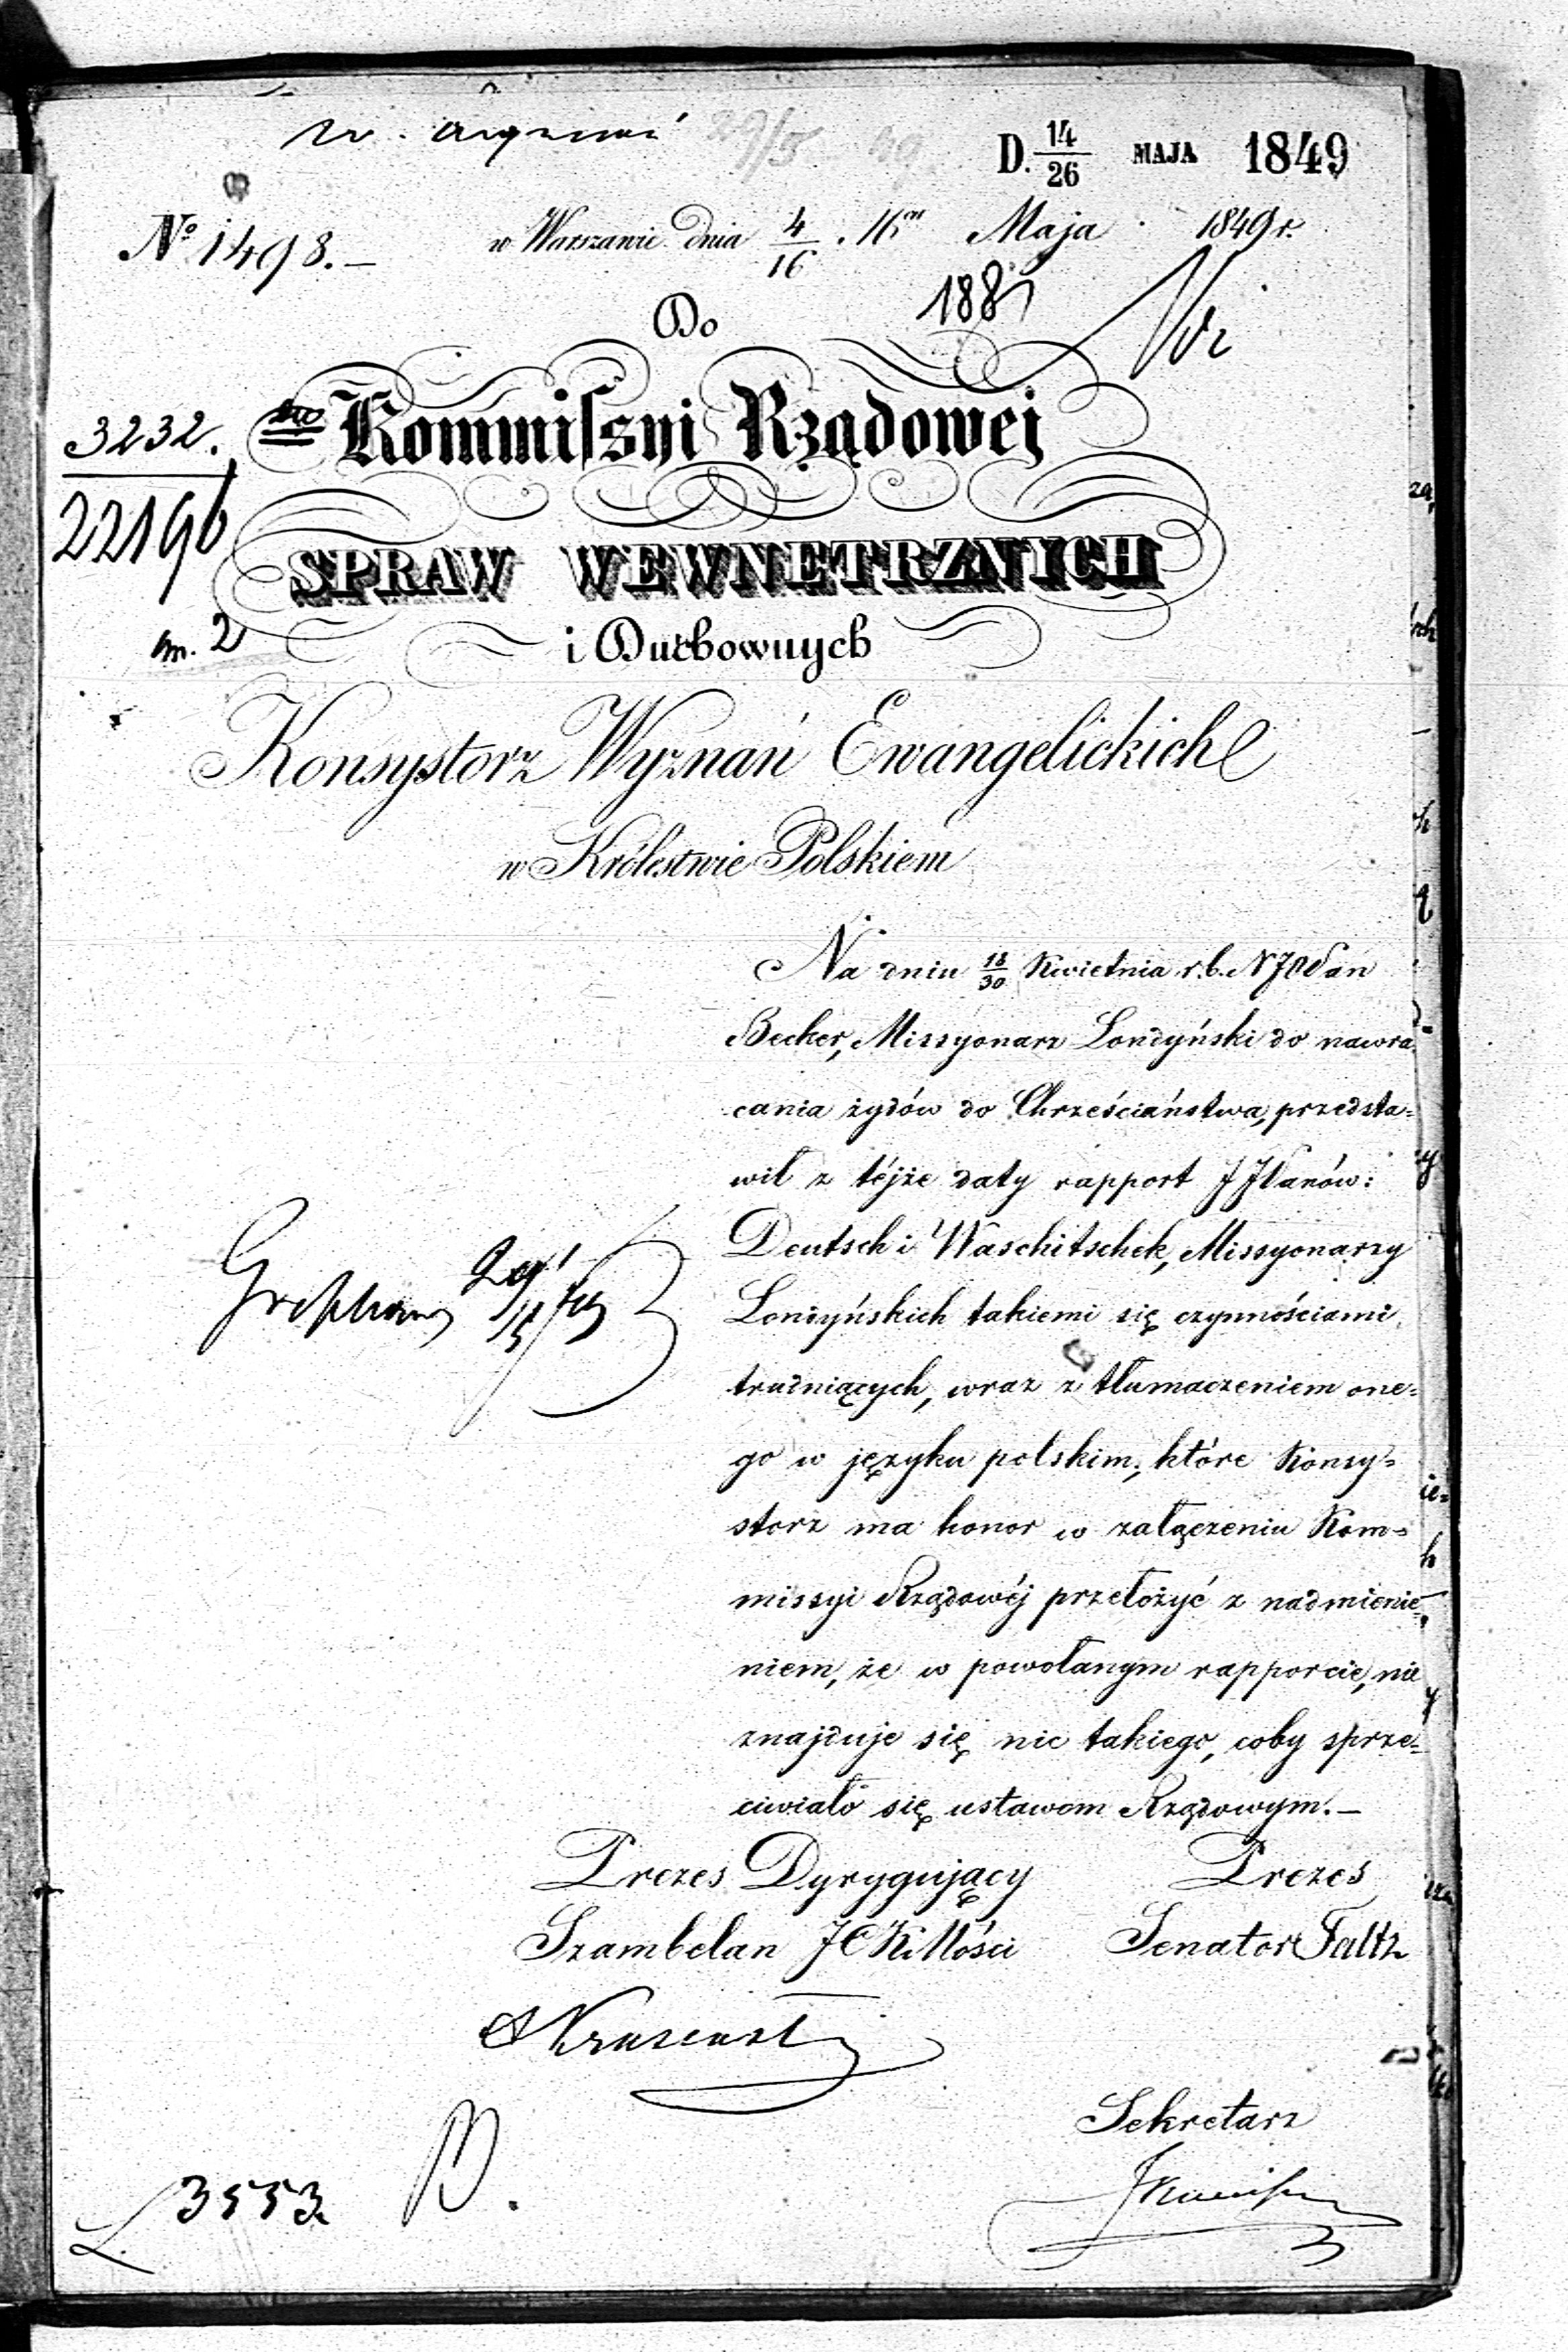 D. 14/26 MAJA 1849
№ 1498.—
w Warszawie dnia 4/16 Maja 1849 r.
Do
188
3232.
22196
Kommissyi Rządowej
SPRAW WEWNETRZNYCH
i Duchownych
Konsystorz Wyznań Ewangelickich
w Królestwie Polskiem
Na dniu 18/30 Kwietnia r.b. N 70 Pan
Becker, Missyonarz Londyński do nawra-
cania żydów do Chrześciaństwa, przedsta=
wił z téjże daty rapport JJPanów:
Deutsch i Waschitschek, Missyonarzy
Londyńskich takiemi się czynnościami
trudniących, wraz z tłumaczeniem one=
go w języku polskim; które Konsy=
storz ma honor w załączeniu Kom=
missyi Rządowéj przełożyć z nadmienie=
niem, że w powołanym rapporcie, nie
znajduje się nic takiego, coby sprze=
ciwiało się ustawom Rządowym.—
Prezes Dyrygujący Prezes
Szambelan JCKMości Senator Faltz
Sekretarz
3553